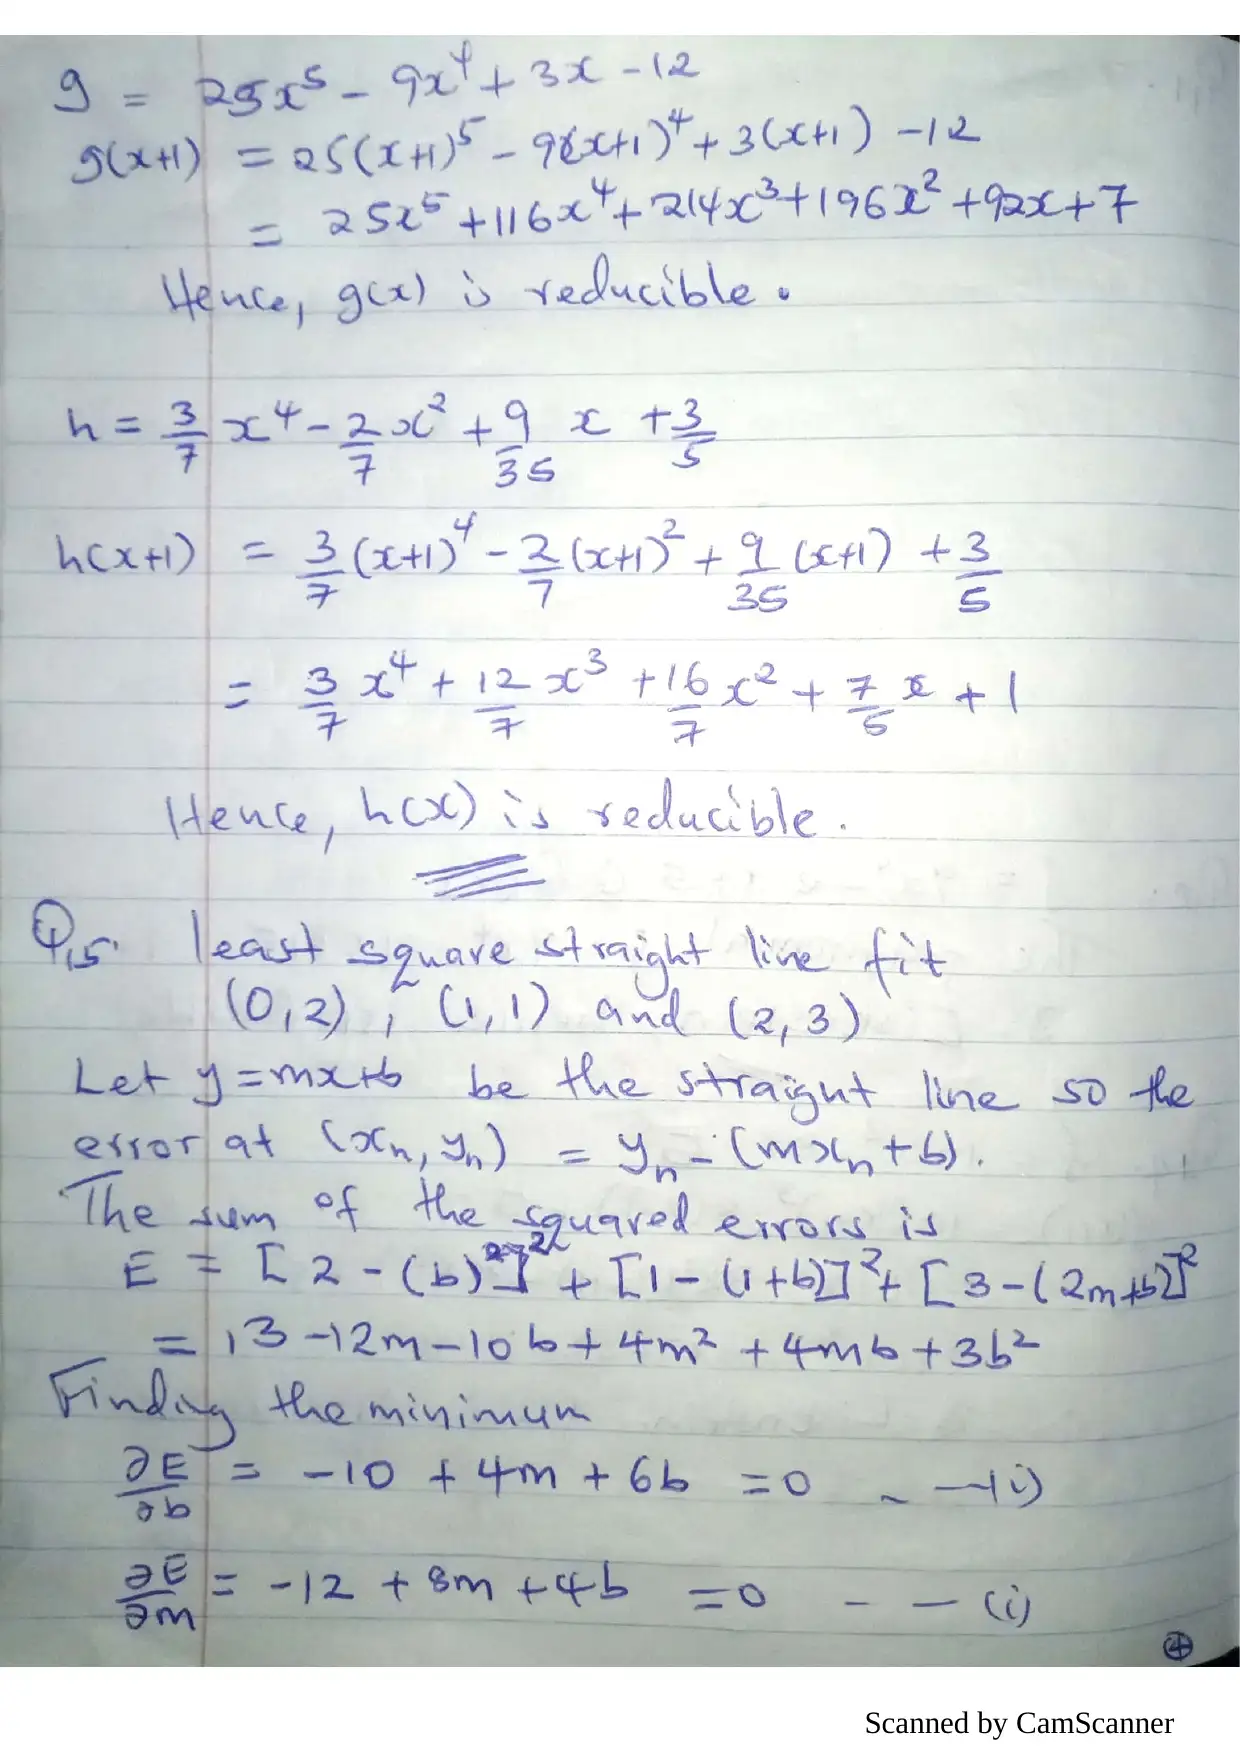 g = 25x⁵ - 9x⁴ + 3x - 12
g(x+1) = 25(x+1)⁵ - 9(x+1)⁴ + 3(x+1) - 12
= 25x⁵ + 116x⁴ + 214x³ + 196x² + 92x + 7
Hence, g(x) is reducible.
h = 3/7 x⁴ - 2/7 x² + 9/35 x + 3/5
h(x+1) = 3/7 (x+1)⁴ - 2/7 (x+1)² + 9/35 (x+1) + 3/5
= 3/7 x⁴ + 12/7 x³ + 16/7 x² + 7/5 x + 1
Hence, h(x) is reducible.
Q5. least square straight line fit
(0,2), (1,1) and (2,3)
Let y = mx+b be the straight line so the
error at (xₙ, yₙ) = yₙ - (mxₙ + b).
The sum of the squared errors is
E = [2 - (b)]² + [1 - (1+b)]² + [3 - (2m+b)]²
= 13 - 12m - 10b + 4m² + 4mb + 3b²
Finding the minimum
∂E/∂b = -10 + 4m + 6b = 0 - - (i)
∂E/∂m = -12 + 8m + 4b = 0 - - (i)
4
Scanned by CamScanner